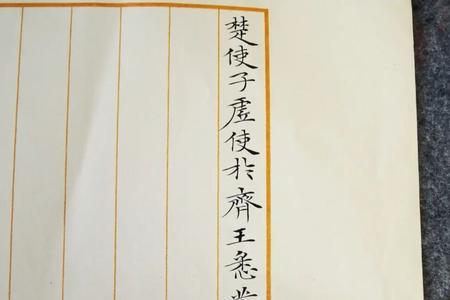 楚使子虛使於齊王悉